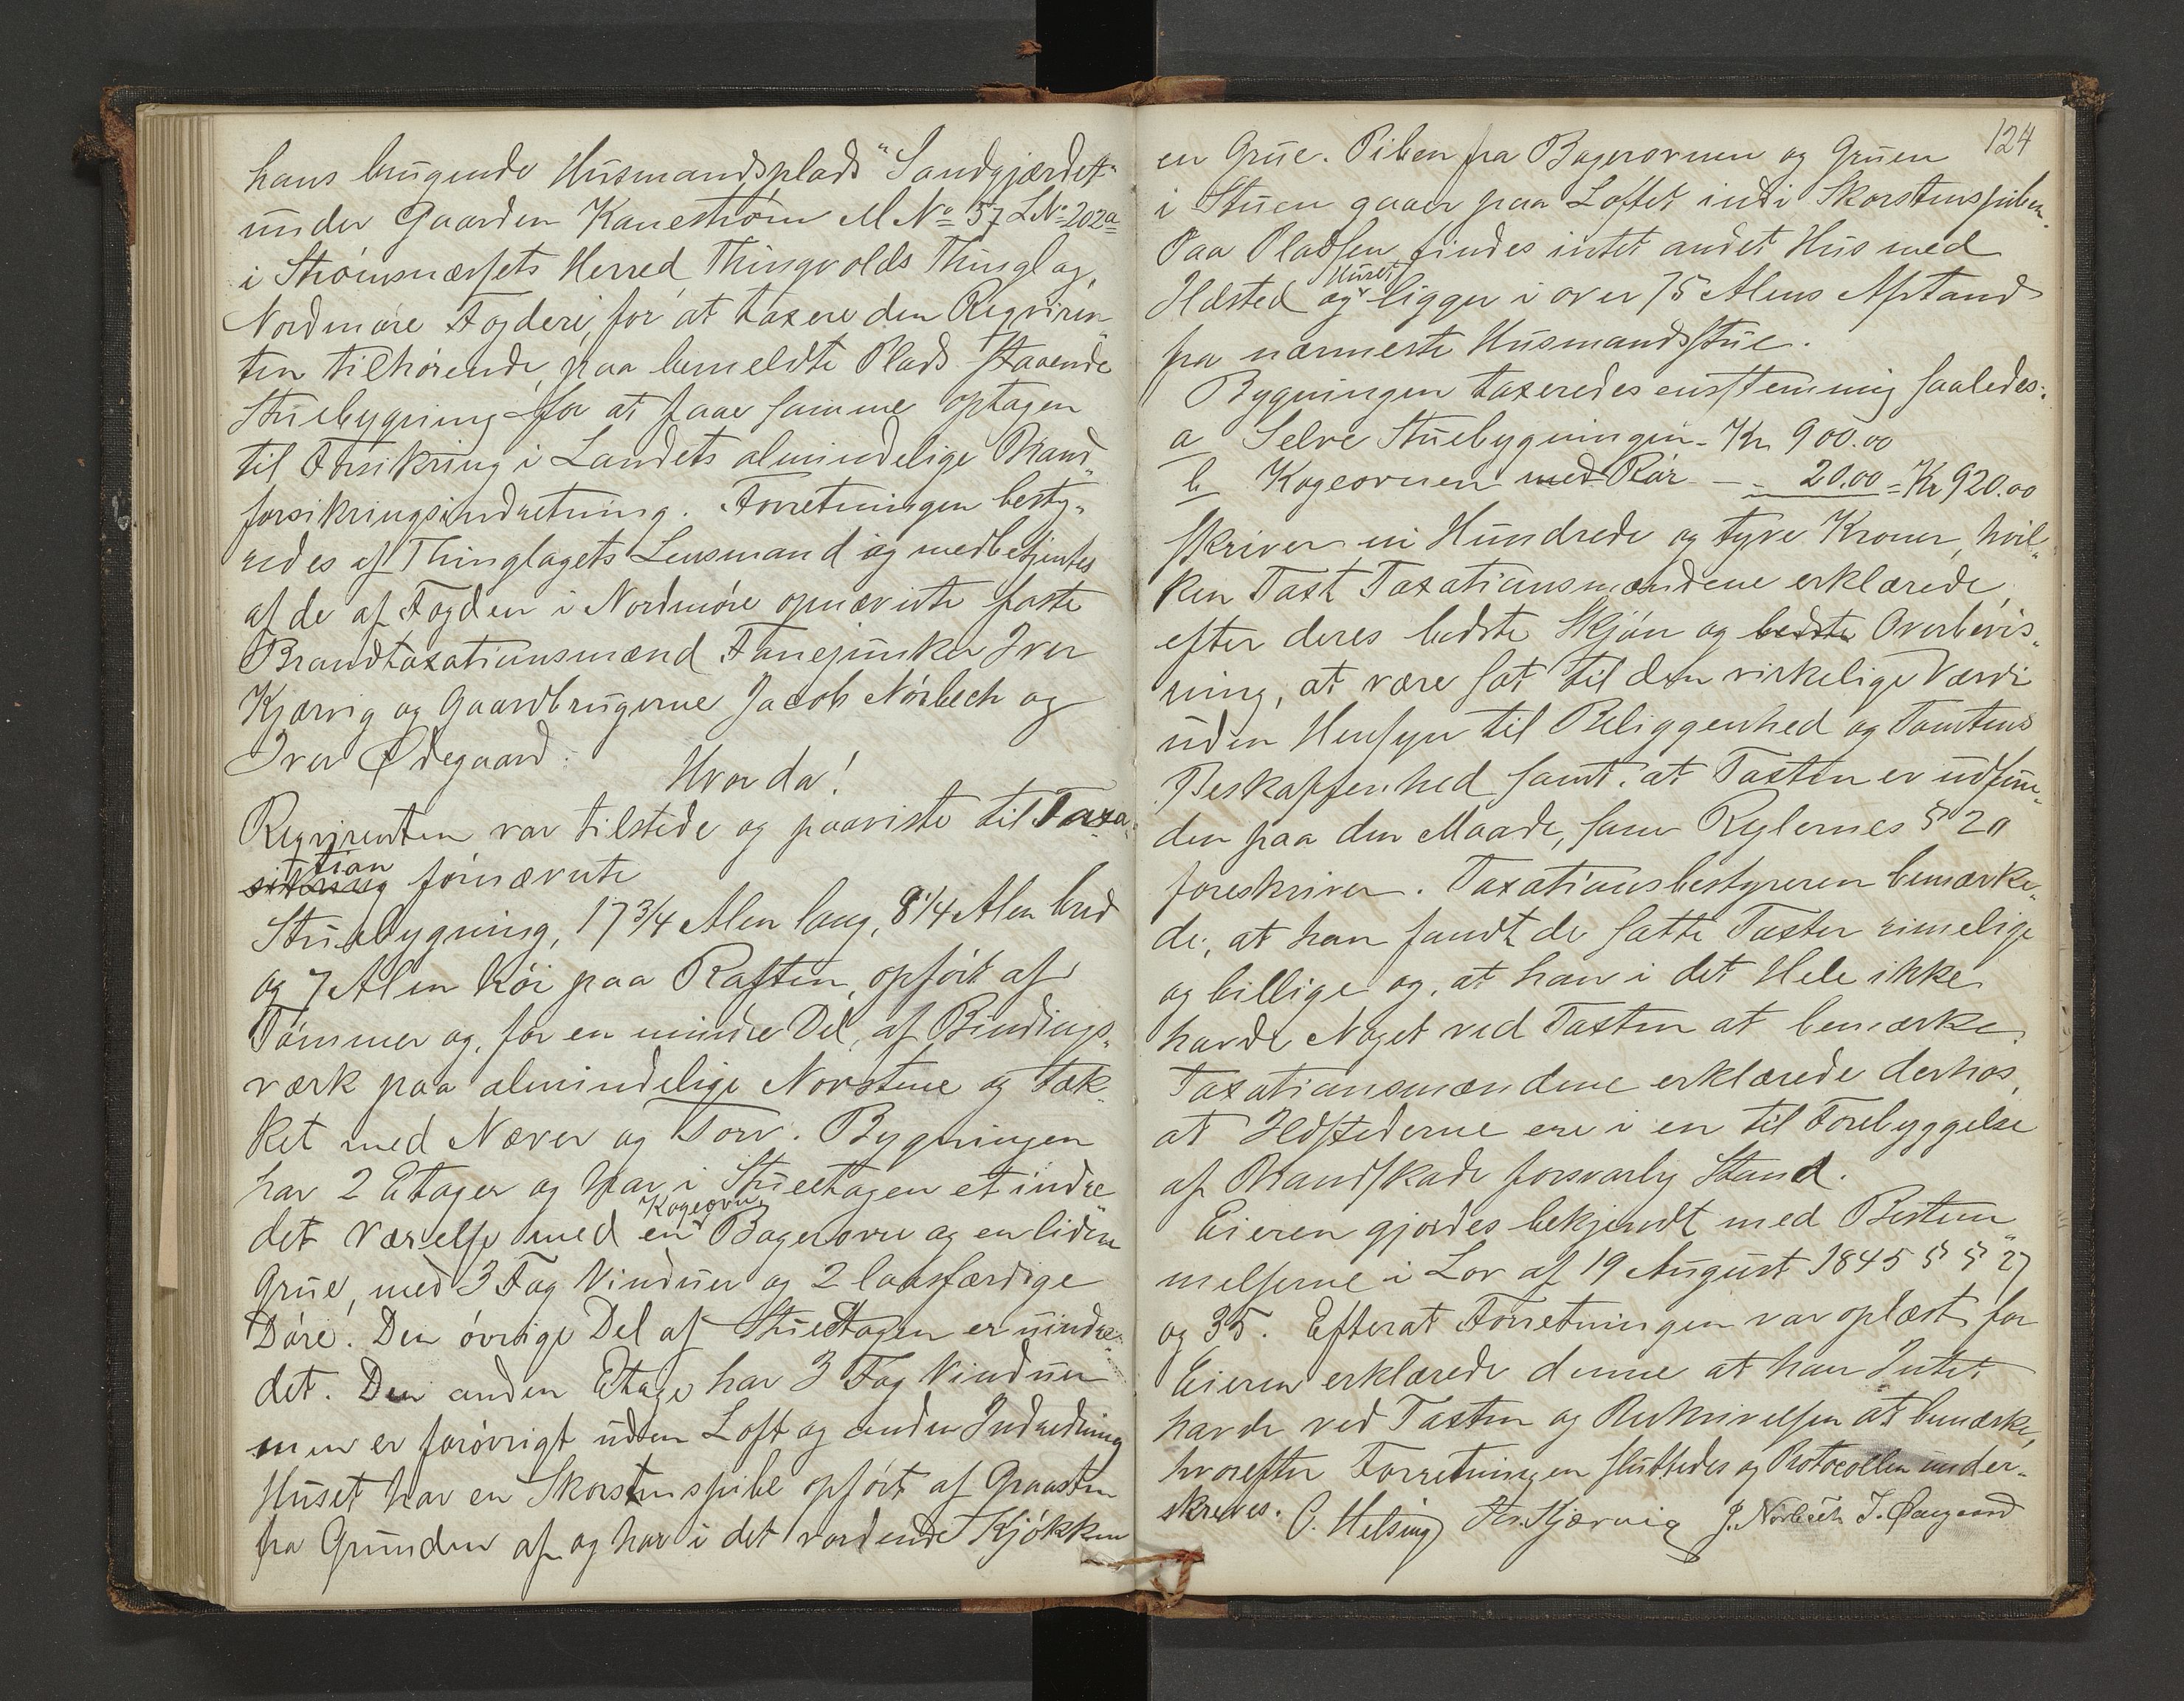 hans brugende Husmandsplads "Sandgjærdet"
under Gaarden Kanestrøm M No 57 LNo 202a
i Strømsnæssets Herred, Thingvolds Thinglag,
Nordmøre Fogderi, for at taxere den Reqviren„
ten tilhørende, paa bemeldte Plads staaende
Stuebygning for at faae samme optagen
til Forsikring i Landets almindelige Brand„
forsikringsindretning. Forretningen besty„
redes af Thinglagets Lensmand og medbetjentes
af de af Fogden i Nordmøre opnævnte faste
Brandtaxationsmænd Fanejunker Iver
Kjærvig og Gaardbrugerne Jacob Nórbech og
Iver Ødegaard:
Hvorda!
Reqvirenten var tilstede og paaviste til Taxa„
tion
fornævnte
Stuebygning, 17 3/4 Alen lang, 8 1/4 Alen bred
og 7 Alen høi paa Raften, opført af
Tømmer og, for en mindre Del, af Bindings„
værk paa almindelige Novstene og tæk„
ket med Næver og Torv. Bygningen
har 2 Etager og har i Stueetagen et indre„
Kogeovn,
det Værelse med en Bagerovn og en liden
Grue, med 3 Fag Vinduer og 2 laasfærdige
Døre. Den øvrige Del af Stueetagen er uindre„
det. Den anden Etage har 3 Fag Vinduer
men er forøvrigt uden Loft og anden Indredning
Huset har en Skorstenspibe opført af Graasten
fra Grunden af og har i det vordende Kjøkken
124
en Grue. Piben fra Bagerovnen og Gruen
i Stuen gaaer paa Loftet ind i Skorstenspiben.
Paa Pladsen findes intet andet Hus med
Huset
Ildsted og ligger i over 75 Alens Afstand
fra nærmeste Husmandsstue.
Bygningen taxeredes enstemmig saaledes:
a Selve Stuebygningen - Kr 900.00
b Kogeovnen med Rør - - 20.00 = Kr 920.00
skriver ni Hundrede og tyve Kroner, hvil„
ken Taxt Taxationsmændene erklærede,
efter deres bedste Skjøn og bedste Overbevis„
ning, at være sat til den virkelige Værdi
uden Hensyn til Beliggenhed og Tomtens
Beskaffenhed samt, at Taxten er udfun„
den paa den Maade, som Reglernes § 20
foreskriver. Taxationsbestyreren bemærke„
de, at han fandt de satte Taxter rimelige
og billige og, at han i det Hele ikke
havde Noget ved Taxten at bemærke.
Taxationsmændene erklærede derhos,
at Ildstederne ere i en til Forebyggelse
af Brandskade forsvarlig Stand.
Eieren gjordes bekjendt med Bestem„
melserne i Lov af 19 August 1845 § § 27
og 35. Efterat Forretningen var oplæst for
Eieren erklærede denne at han Intet
havde ved Taxten og Beskrivelsen at bemærke,
hvorefter Forretningen sluttedes og Protocollen under„
skreves. O. Helsing Iv. Kjærvig J. Nórbech I. Øegaard